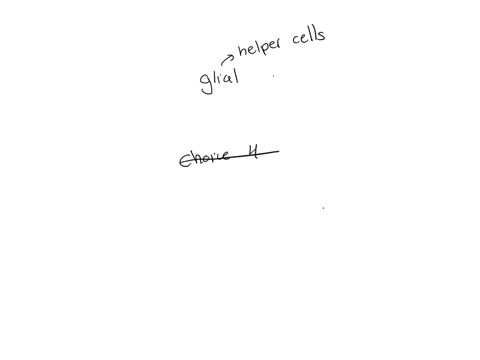 helper cells
glial
Choice 4